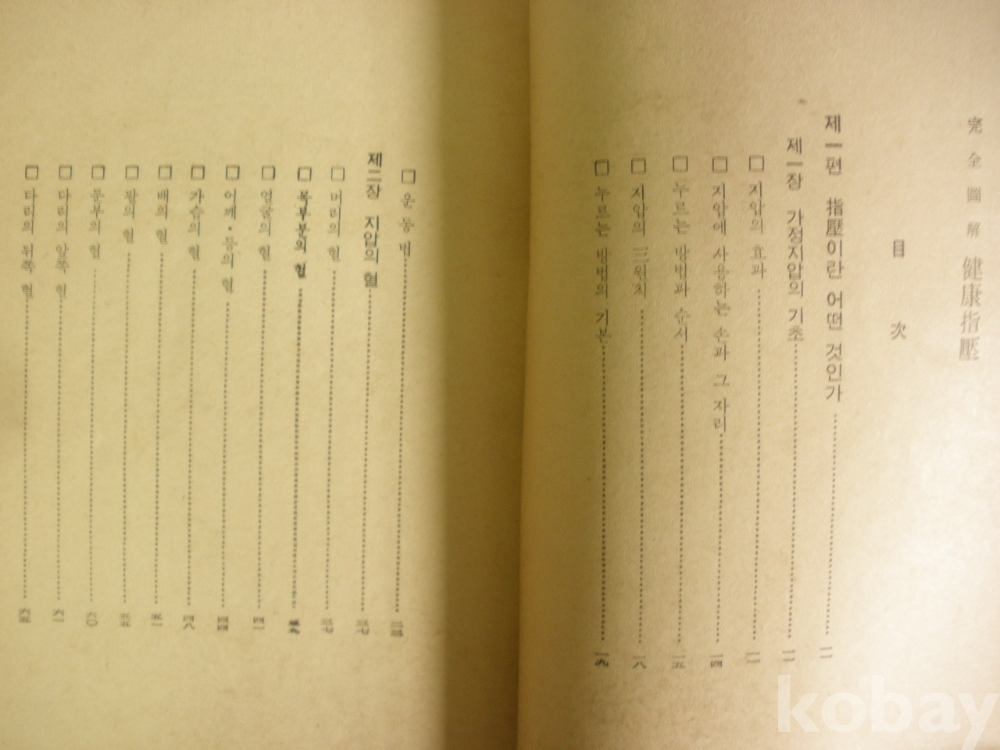 完全圖解 健康指壓
目次
제一편 指壓이란 어떤 것인가
제一장 가정지압의 기초
□ 지압의 효과
□ 지압에 사용하는 손과 그 자리 一四
□ 누르는 방법과 순서 一五
□ 지압의 三원칙 一八
□ 누르는 방법의 기본 一九
□ 운동법
제二장 지압의 혈 三七
□ 머리의 혈 三七
□ 목부분의 혈 三九
□ 얼굴의 혈 四一
□ 어깨・등의 혈 四四
□ 가슴의 혈 四八
□ 배의 혈 五一
□ 팔의 혈 五五
□ 둔부의 혈 六〇
□ 다리의 앞쪽 혈 六一
□ 다리의 뒤쪽 혈 六五
kobay